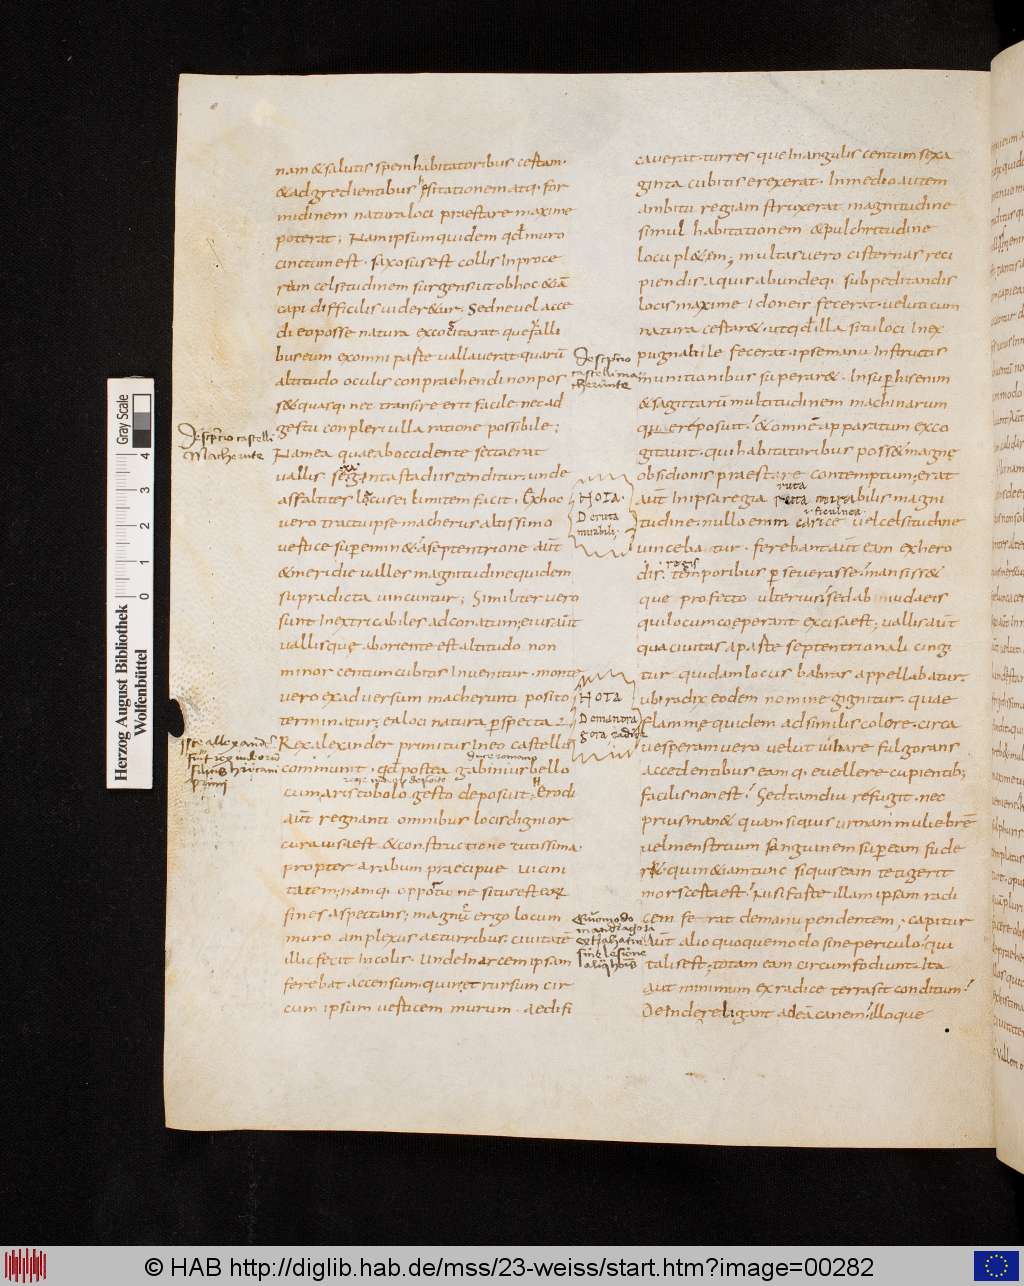 nam & salutis spem habitatoribus certam.
& adgredientibus hesitationem atq; for
midinem natura loci praestare maxime
poterat; Nam ipsum quidem qđ muro
cinctum est. saxosus est collis In proce
ram celsitudinem surgens ut ob hoc & iā
capi difficilis uider&ur. Sed ne uel acce
di eo posse natura excogitarat. que ualli
bus eum ex omni parte uallauerat quarū
altitudo oculis conpraehendi non pos
s& quasq; nec transire erit facile nec ad
gestu conpleri ulla ratione possibile;
Nam ea quae ab occidente secta erat
uallis sexaginta stadiis tenditur. unde
asfaltites lacus ei limitem facit. Ex hoc
uero tractu ipse macherus altissimo
uertice supereminet a septentrione aūt
& meridie ualles magnitudine quidem
supradicta uincuntur; Similiter uero
sunt Inextricabiles ad conatum; eius aūt
uallis que ab oriente est altitudo non
minor centum cubitis Inuenitur. monte
uero ex aduersum macherunti posito
terminatur; ea loci natura perspecta
Rex alexander primitus In eo castellū
communit. qđ postea gabinius bello
cum aristobolo gesto deposuit. herodi
aūt regnanti omnibus locis dignior
cura uisa est. & constructione tutissima.
propter arabum praecipue uicini
tatem; namq; opportune situs est eor
fines aspectans; magnū ergo locum
muro amplexus ac turribus. ciuitatē
illic fecit Incolis. Unde In arcem ipsam
ferebat accensum quin; et rursum cir
cum ipsum uerticem murum. aedifi
Descriptio castelli
Macherunte
Iste allexander
fuit rex iudeorū
filius hircani
primi
dux romanorum
Descriptio
castelli ma
cherunte
NOTA.
De ruta
mirabili
NOTA
De mandra
gora radice
Quomodo
mandragora
extrahatur
sine lesione
alicuius hominis
cauerat. turres que In angulis centum sexa
ginta cubitis erexerat. In medio autem
ambitu regiam struxerat magnitudine
simul habitationem & pulchritudine
locupl&em; multas uero cisternas reci
piendis aquis abundeq; subpeditandis
locis maxime Idoneis fecerat. uelut cum
natura certar& utqđ illa situ loci Inex
pugnabile fecerat. ipse manu Instructis
munitionibus superar&. Insuper his enim
& sagittarū multitudinem machinarum
que reposuit. & omnē apparatum exco
gitauit. qui habitatoribus poss& magnę
obsidionis praestare contemptum; erat
aūt In ipsa regia ruta mirabilis magni
tudine. nullo enim carice uel celsitudine
ł ficulnea
uinceba tur. ferebant aūt eam ex hero
dis. regis temporibus perseuerasse. mansiss&
que profecto ulterius. sed ab iudaeis
qui locum coeperant excisa est; uallis aūt
qua ciuitas a parte septentrionali cingi
tur. quidam locus babras appellabatur.
ubi radix eodem nomine gignitur. quae
flammę quidem adsimilis colore. circa
uesperam uero uelut iubare fulgorans
accedentibus eamq; euellere cupientib;
facilis non est. Sed tamdiu refugit. nec
prius man& quam si quis urinam muliebrē
uel menstruum sanguinem super eam fude
rit. quin & iam tunc si quis eam tetigerit
mors certa est. Nisi forte illam ipsam radi
cem ferat de manu pendentem; capitur
aūt alio quoque modo sine periculo. qui
talis est; totam eam circumfodiunt. Ita
aūt minimum ex radice terra sit conditum.
Deinde religant ad eā canem. illoque
Gray Scale
0 1 2 3 4
Herzog August Bibliothek
Wolfenbüttel
© HAB http://diglib.hab.de/mss/23-weiss/start.htm?image=00282